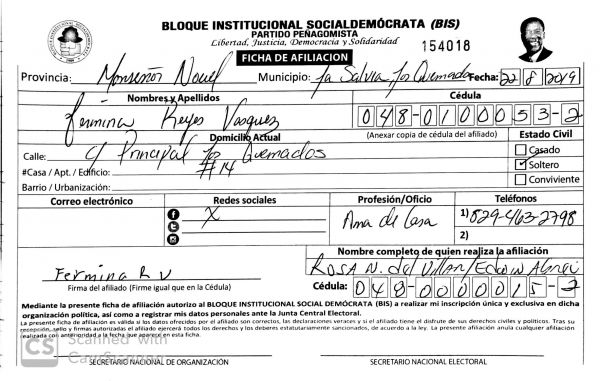 BLOQUE INSTITUCIONAL SOCIALDEMÓCRATA (BIS)
PARTIDO PEÑAGOMISTA
Libertad, Justicia, Democracia y Solidaridad
154018
FICHA DE AFILIACION
Provincia: Monseñor Nouel Municipio: La Salvia Los Quemados Fecha: 22/8/2019
Nombres y Apellidos
Cédula
Fermina Reyes Vasquez
048-0100053-2
Domicilio Actual
(Anexar copia de cédula del afiliado)
Estado Civil
Calle: C/ Principal Los Quemados
Casado
#Casa / Apt. / Edificio: #14
Soltero
Barrio / Urbanización:
Conviviente
Correo electrónico
Redes sociales
Profesión/Oficio
Teléfonos
X
Ama de Casa
1) 829-463-2798
2)
Nombre completo de quien realiza la afiliación
Fermina R V
Rosa N. del Villar/Edwin
Firma del afiliado (Firme igual que en la Cédula)
Cédula: 048-0000015-2
Mediante la presente ficha de afiliación autorizo al BLOQUE INSTITUCIONAL SOCIAL DEMÓCRATA (BIS) a realizar mi inscripción única y exclusiva en dicha
organización política, así como a registrar mis datos personales ante la Junta Central Electoral.
La presente ficha de afiliación es válida si los datos ofrecidos por el afiliado son correctos, las declaraciones veraces y si el afiliado tiene el disfrute de sus derechos civiles y políticos. Tras su
recepción, sello y firmas autorizadas el afiliado ejercerá todos los derechos y los deberes estatutariamente sancionados, de acuerdo a la ley. La presente afiliación anula cualquier afiliación
realizada con anterioridad a la fecha que aparece en esta ficha.
CS Scanned with
CamScanner
SECRETARIO NACIONAL DE ORGANIZACIÓN
SECRETARIO NACIONAL ELECTORAL